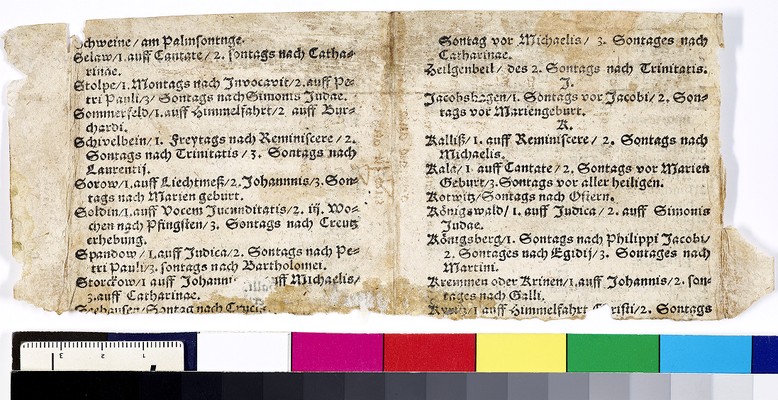 Schweine/ am Palmsontage.
Selaw/1. auff Cantate/ 2. sontags nach Catha-
rinae.
Stolpe/1. Montags nach Invocavit/2. auff Pe-
tri Pauli/3/ Sontags nach Simonis Judae.
Sommerfeld/1. auff Himmelfahrt/2 auff Bur-
chardi.
Schivelbein/ 1. Freytags nach Reminiscere/ 2.
Sontags nach Trinitatis/ 3. Sontags nach
Laurentij.
Sorow/1. auff Liechtmeß/2. Johannnis/3. Son-
tags nach Marien geburt.
Soldin/1. auff Vocem Jucunditatis/2. iij. Wo-
chen nach Pfingsten/3. Sontags nach Creutz
erhebung.
Spandow/1. auff Judica/2. Sontags nach Pe-
tri Pauli/3. sontags nach Bartholomei.
Storckow/1 auff Johanni auff Michaelis/
3. auff Catharinae.
Seehausen/Sontag nach Crucis
Sontag vor Michaelis/ 3. Sontages nach
Catharinae.
Heilgenbeil/ des 2. Sontags nach Trinitatis.
J.
Jacobshagen/1. Sontags vor Jacobi/2. Son-
tags vor Mariengeburt.
K.
Kalliß/1. auff Reminiscere/2. Sontags nach
Michaelis.
Kala/1 auff Cantate/2. Sontags vor Marien
Geburt/3. Sontags vor aller heiligen.
Kotwitz/Sontags nach Ostern.
Königswald/1. auff Judica/2. auff Simonis
Judae.
Königsberg/1. Sontags nach Philippi Jacobi/
2. Sontages nach Egidij/3. Sontages nach
Martini.
Kremmen oder Krinen/1. auff Johannis/2. son-
tages nach Galli.
1 auff Himmelfahrt Christi/2. Sontags
3 2 1